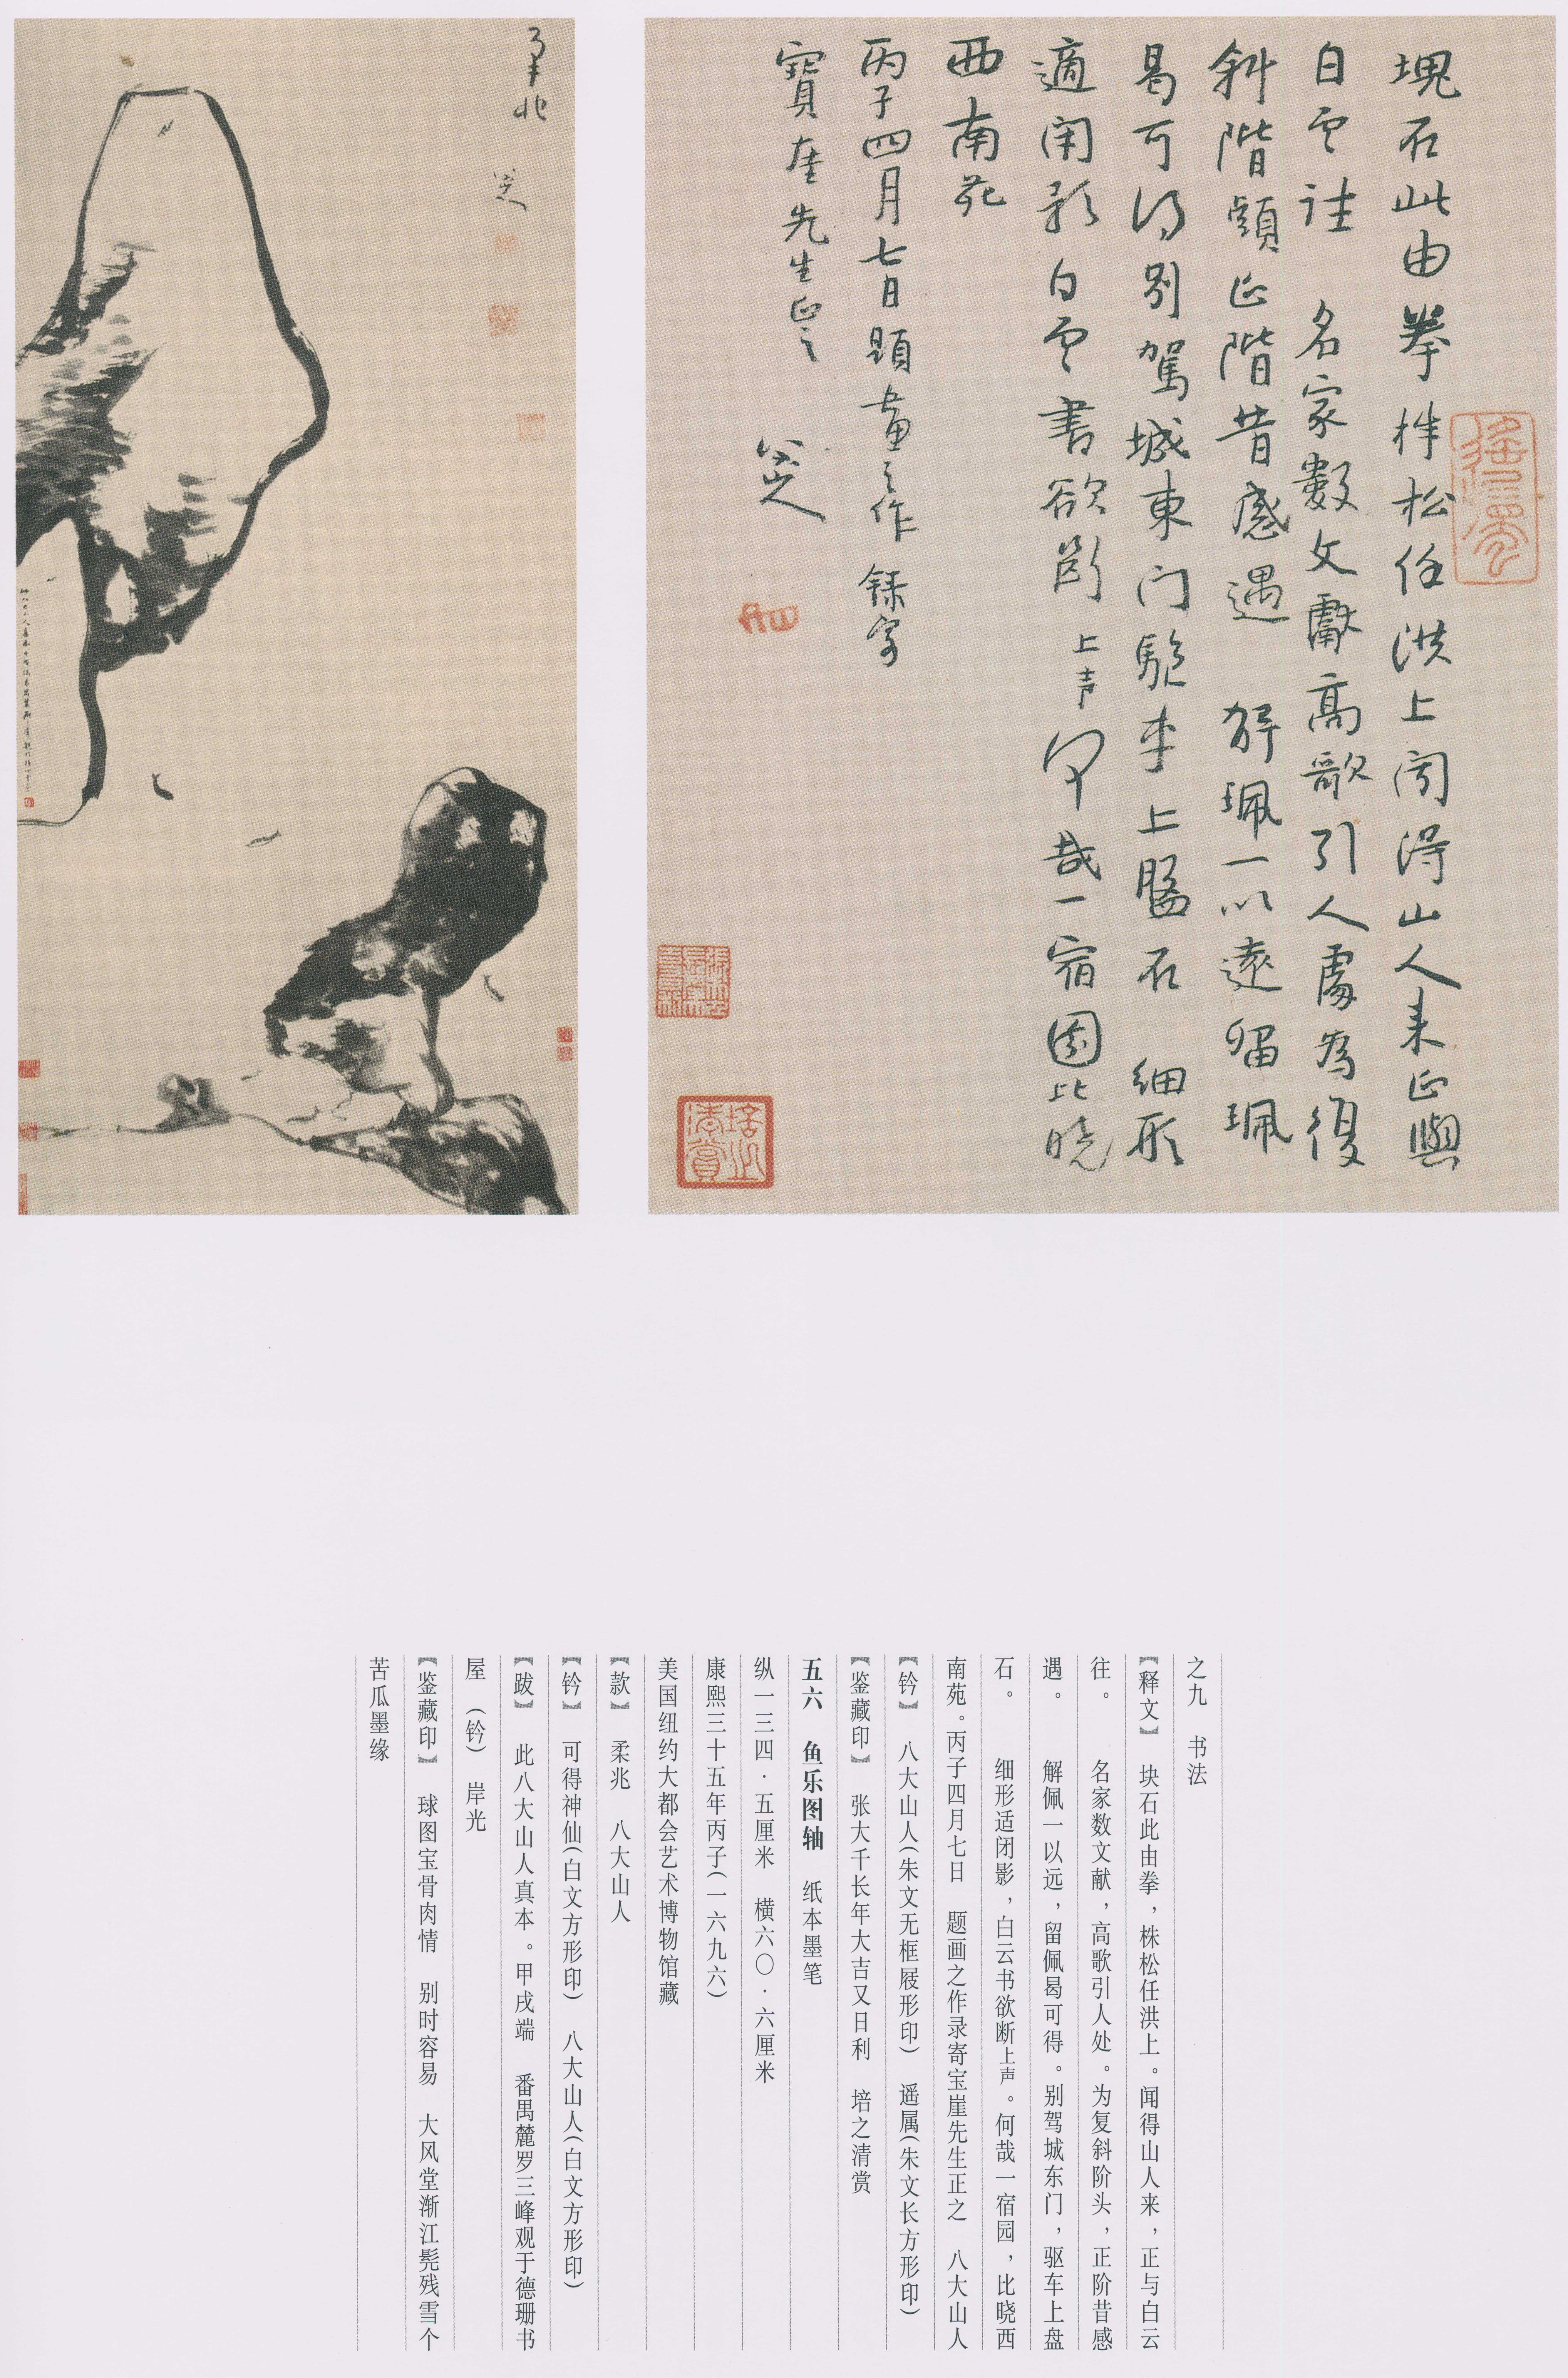 塊石此由拳株松任洪上闻得山人来正與
白雲往 名家數文獻高歌引人處為復
斜階頭正階昔感遇 解珮一以遠留珮
曷可得別駕城東门驅车上盤石 细形
適闭影白雲書欲断上声何哉一宿園比晓
西南苑
丙子四月七日題畫之作錄寄
寶崖先生正之
八大山人
柔兆
八大山人
之九 书法
【释文】 块石此由拳，株松任洪上。闻得山人来，正与白云
往。 名家数文献，高歌引人处。为复斜阶头，正阶昔感
遇。 解佩一以远，留佩曷可得。别驾城东门，驱车上盘
石。 细形适闭影，白云书欲断上声。何哉一宿园，比晓西
南苑。丙子四月七日 题画之作录寄宝崖先生正之 八大山人
【钤】 八大山人(朱文无框屐形印) 遥属(朱文长方形印)
【鉴藏印】 张大千长年大吉又日利 培之清赏
五六 鱼乐图轴 纸本墨笔
纵一三四·五厘米 横六〇·六厘米
康熙三十五年丙子(一六九六)
美国纽约大都会艺术博物馆藏
【款】 柔兆 八大山人
【钤】 可得神仙(白文方形印) 八大山人(白文方形印)
【跋】 此八大山人真本。甲戌端 番禺麓罗三峰观于德珊书
屋 (钤) 岸光
【鉴藏印】 球图宝骨肉情 别时容易 大风堂渐江髡残雪个
苦瓜墨缘